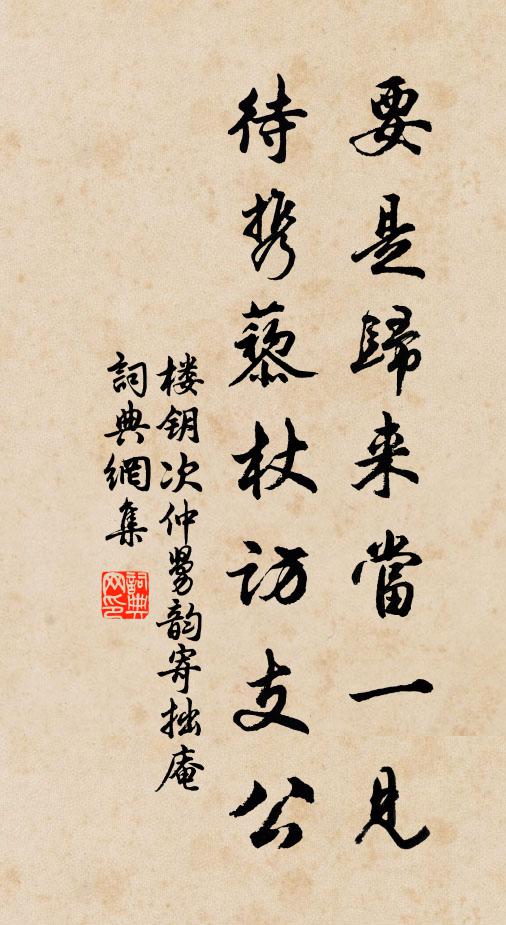 要是歸来當一見
待携藜杖访支公
楼钥次仲舅韵寄拙庵
詞典網集
詞典网印